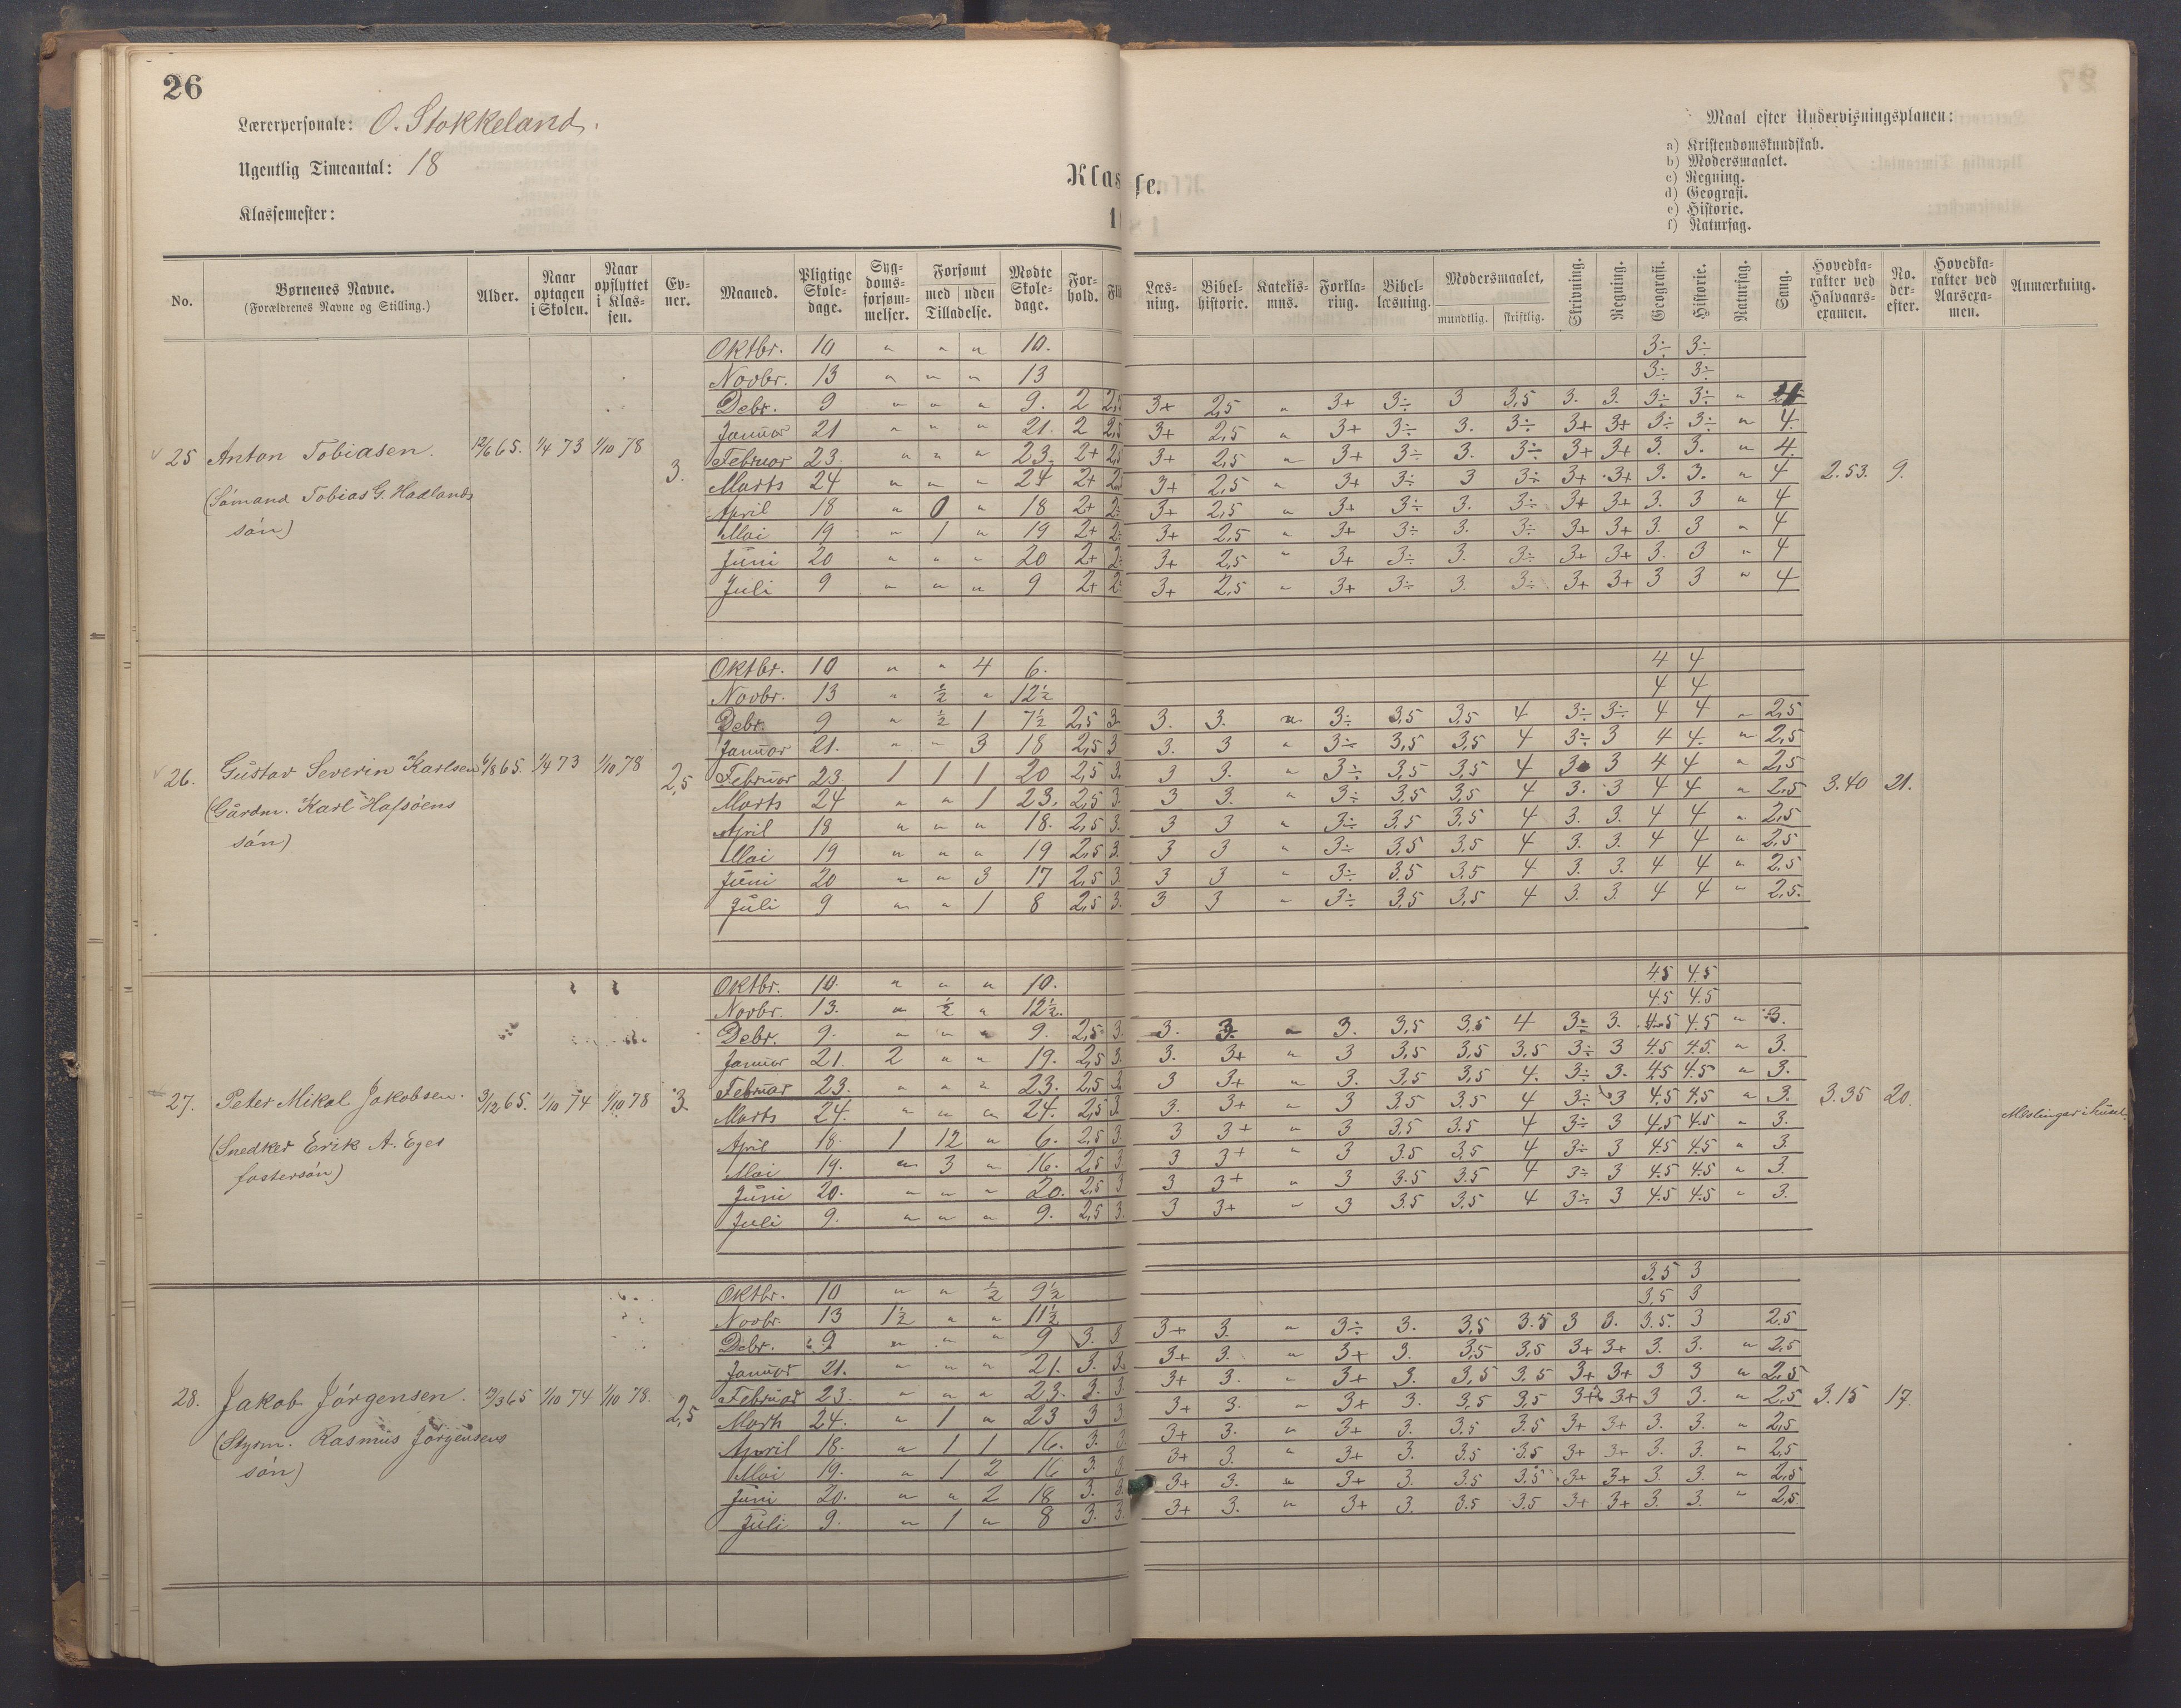 26
Lærerpersonale: O. Stokkeland.
Ugentlig Timeantal: 18
Klassemester:
Klasse.
Maal efter Undervisningsplanen:
a) Kristendomskundskab.
b) Modersmaalet.
c) Regning.
d) Geografi.
e) Historie.
f) Naturfag.
No. Børnenes Navne. (Forældrenes Navne og Stilling.) Alder. Naar optagen i Skolen. Naar opflyttet i Klassen. Evner. Maaned. Pligtige Skoledage. Sygdomsforsømmelser. Forsømt med uden Tilladelse. Mødte Skoledage. Forhold. Læsning. Bibelhistorie. Katekismus. Forklaring. Bibellæsning. Modersmaalet, mundtlig. skriftlig. Skrivning. Regning. Geografi. Historie. Naturfag. Sang. Hovedkarakter ved Halvaarsexamen. No. derefter. Hovedkarakter ved Aarsexamen. Anmærkning.
25 Anton Tobiasen. 12/6 65. 1/4 73 1/10 78 3. 2.53. 9.
(Sömand Tobias G. Hadlands
sön)
Oktbr. 10 " " " 10. 3÷ 3÷
Novbr. 13 " " " 13 3÷ 3÷
Debr. 9 " " " 9. 2 2,5 3+ 2,5 " 3+ 3÷ 3 3,5 3. 3. 3÷ 3÷ "
Januar 21 " " " 21. 2 2,5 3+ 2,5 " 3+ 3÷ 3. 3÷ 3+ 3+ 3÷ 3÷ " 4.
Februar 23. " " " 23. 2+ 2,5 3+ 2,5 " 3+ 3÷ 3. 3÷ 3+ 3+ 3. 3. " 4.
Marts 24 " " " 24 2+ 3+ 2,5 " 3+ 3÷ 3 3÷ 3+ 3+ 3. 3. " 4
April 18 " 0 " 18 2+ 2÷ 3+ 2,5 " 3+ 3÷ 3. 3÷ 3+ 3+ 3. 3 " 4
Mai 19 " 1 " 19 2+ 2÷ 3+ 2,5 " 3+ 3÷ 3. 3÷ 3+ 3+ 3. 3 " 4
Juni 20 " " " 20 2+ 2÷ 3+ 2,5 " 3+ 3÷ 3. 3÷ 3+ 3+ 3. 3 " 4
Juli 9 " " " 9 2+ 2÷ 3+ 2,5 " 3+ 3÷ 3. 3÷ 3+ 3+ 3 3 " 4
26. Gustav Severin Karlsen 6/8 65. 1/4 73 1/10 78 2,5 3.40 21.
(Gårdm. Karl Hafsöens
sön)
Oktbr. 10 " " 4 6. 4 4
Novbr. 13 " ½ " 12½ 4 4
Debr. 9 " ½ 1 7½ 2,5 3. 3. 3. " 3÷ 3,5 3,5 4 3÷ 3÷ 4 4 " 2,5
Januar 21. " " 3 18 2,5 3 3. 3 " 3÷ 3,5 3,5 4 3÷ 3 4 4. " 2,5
Februar 23. 1 1 1 20 2,5 3. 3 3. " 3÷ 3,5 3,5 4 3 3 4 4 " 2,5
Marts 24 " " 1 23. 2,5 3. 3 3. " 3÷ 3,5 3,5 4 3. 3 4 4 " 2,5
April 18 " " " 18. 2,5 3. 3 3 " 3÷ 3,5 3,5 4 3. 3. 4 4 " 2,5
Mai 19 " " " 19 2,5 3. 3 3 " 3÷ 3,5 3,5 4 3. 3. 4 4 " 2,5
Juni 20 " " 3 17 2,5 3. 3 3 " 3÷ 3.5 3,5 4 3. 3. 4 4 " 2,5
Juli 9 " " 1 8 2,5 3. 3 3 " 3÷ 3,5 3,5 4 3. 3. 4 4 " 2,5.
27. Peter Mikal Jakobsen. 3/12 65. 1/10 74 1/10 78 3 3.35 20. Meslinger i huset.
(Snedker Erik A. Eges
fostersön)
Oktbr. 10. " " " 10. 4.5 4.5
Novbr. 13. " ½ " 12½. 4.5 4.5
Debr. 9. " " " 9. 2,5 3. 3. 3. " 3. 3,5 3,5 4 3÷ 3. 4.5 4.5 " 3.
Januar 21. 2 " " 19. 2,5 3. 3. 3+ " 3 3,5 3,5 3,5 3÷ 3 4.5 4.5. " 3.
Februar 23. " " " 23. 2,5 3. 3 3+ " 3. 3,5 3,5 4. 3÷ 3. 4.5 4.5 " 3.
Marts 24. " " " 24. 2,5 3. 3. 3+ " 3 3.5 3.5 4 3÷ 3 4.5 4.5 " 3.
April 18. 1 12 " 6. 2,5 3. 3 3+ " 3 3,5 3.5 4 3÷ 3 4,5 4.5 " 3.
Mai 19. " 3 " 16. 2,5 3 3 3+ " 3 3.5 3,5 4 3÷ 3 4.5 4.5 " 3.
Juni 20. " " " 20. 2,5 3 3 3+ " 3 3.5 3.5 4 3÷ 3 4.5 4.5 " 3.
Juli 9. " " " 9. 2,5 3. 3 3+ " 3 3.5 3.5 4 3÷ 3 4.5 4.5 " 3.
28. Jakob Jörgensen. 13/3 65 1/10 74 1/10 78. 2,5 3.15 17.
(Styrm. Rasmus Jörgensens
sön)
Oktbr. 10 " " ½ 9½ 3.5 3
Novbr. 13 1½ " " 11½ 3,5 3
Debr. 9 " " " 9 3. 3 3+ 3. " 3÷ 3. 3,5 3.5 3 3. 3.5. 3 2.5
Januar 21. " " " 21. 3. 3. 3+ 3. " 3+ 3. 3,5 3,5 3+ 3+ 3. 3. " 2,5
Februar 23. " " " 23. 3. 3 3+ 3. " 3+ 3. 3,5 3.5 3+ 3+ 3 3 " 2,5
Marts 24. " 1 " 23 3 3. 3+ 3. " 3+ 3. 3,5 3,5 3+ 3+ 3 3. " 2,5
April 18. " 1 1 16. 3. 3 3+ 3. " 3+ 3. 3.5 3.5 3+ 3+ 3. 3. " 2,5
Mai 19. " 1 2 16 3. 3 3+ 3. " 3+ 3. 3.5 3.5 3+ 3+ 3. 3. " 2,5
Juni 20. " " 2 18 3. 3. 3+ 3. " 3+ 3. 3.5 3.5 3+ 3+ 3. 3. " 2,5
Juli 9. " 1 " 8 3. 3. 3+ 3. " 3+ 3. 3.5 3.5 3+ 3+ 3. 3. " 2,5